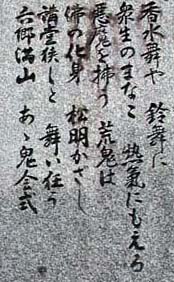 香水舞や 鈴舞に
衆生のまなこ 熱氣にもえろ
悪魔を拂う 荒鬼は
佛の化身 松明かざし
講堂狭しと 舞い狂う
六郷満山 あゝ鬼会式